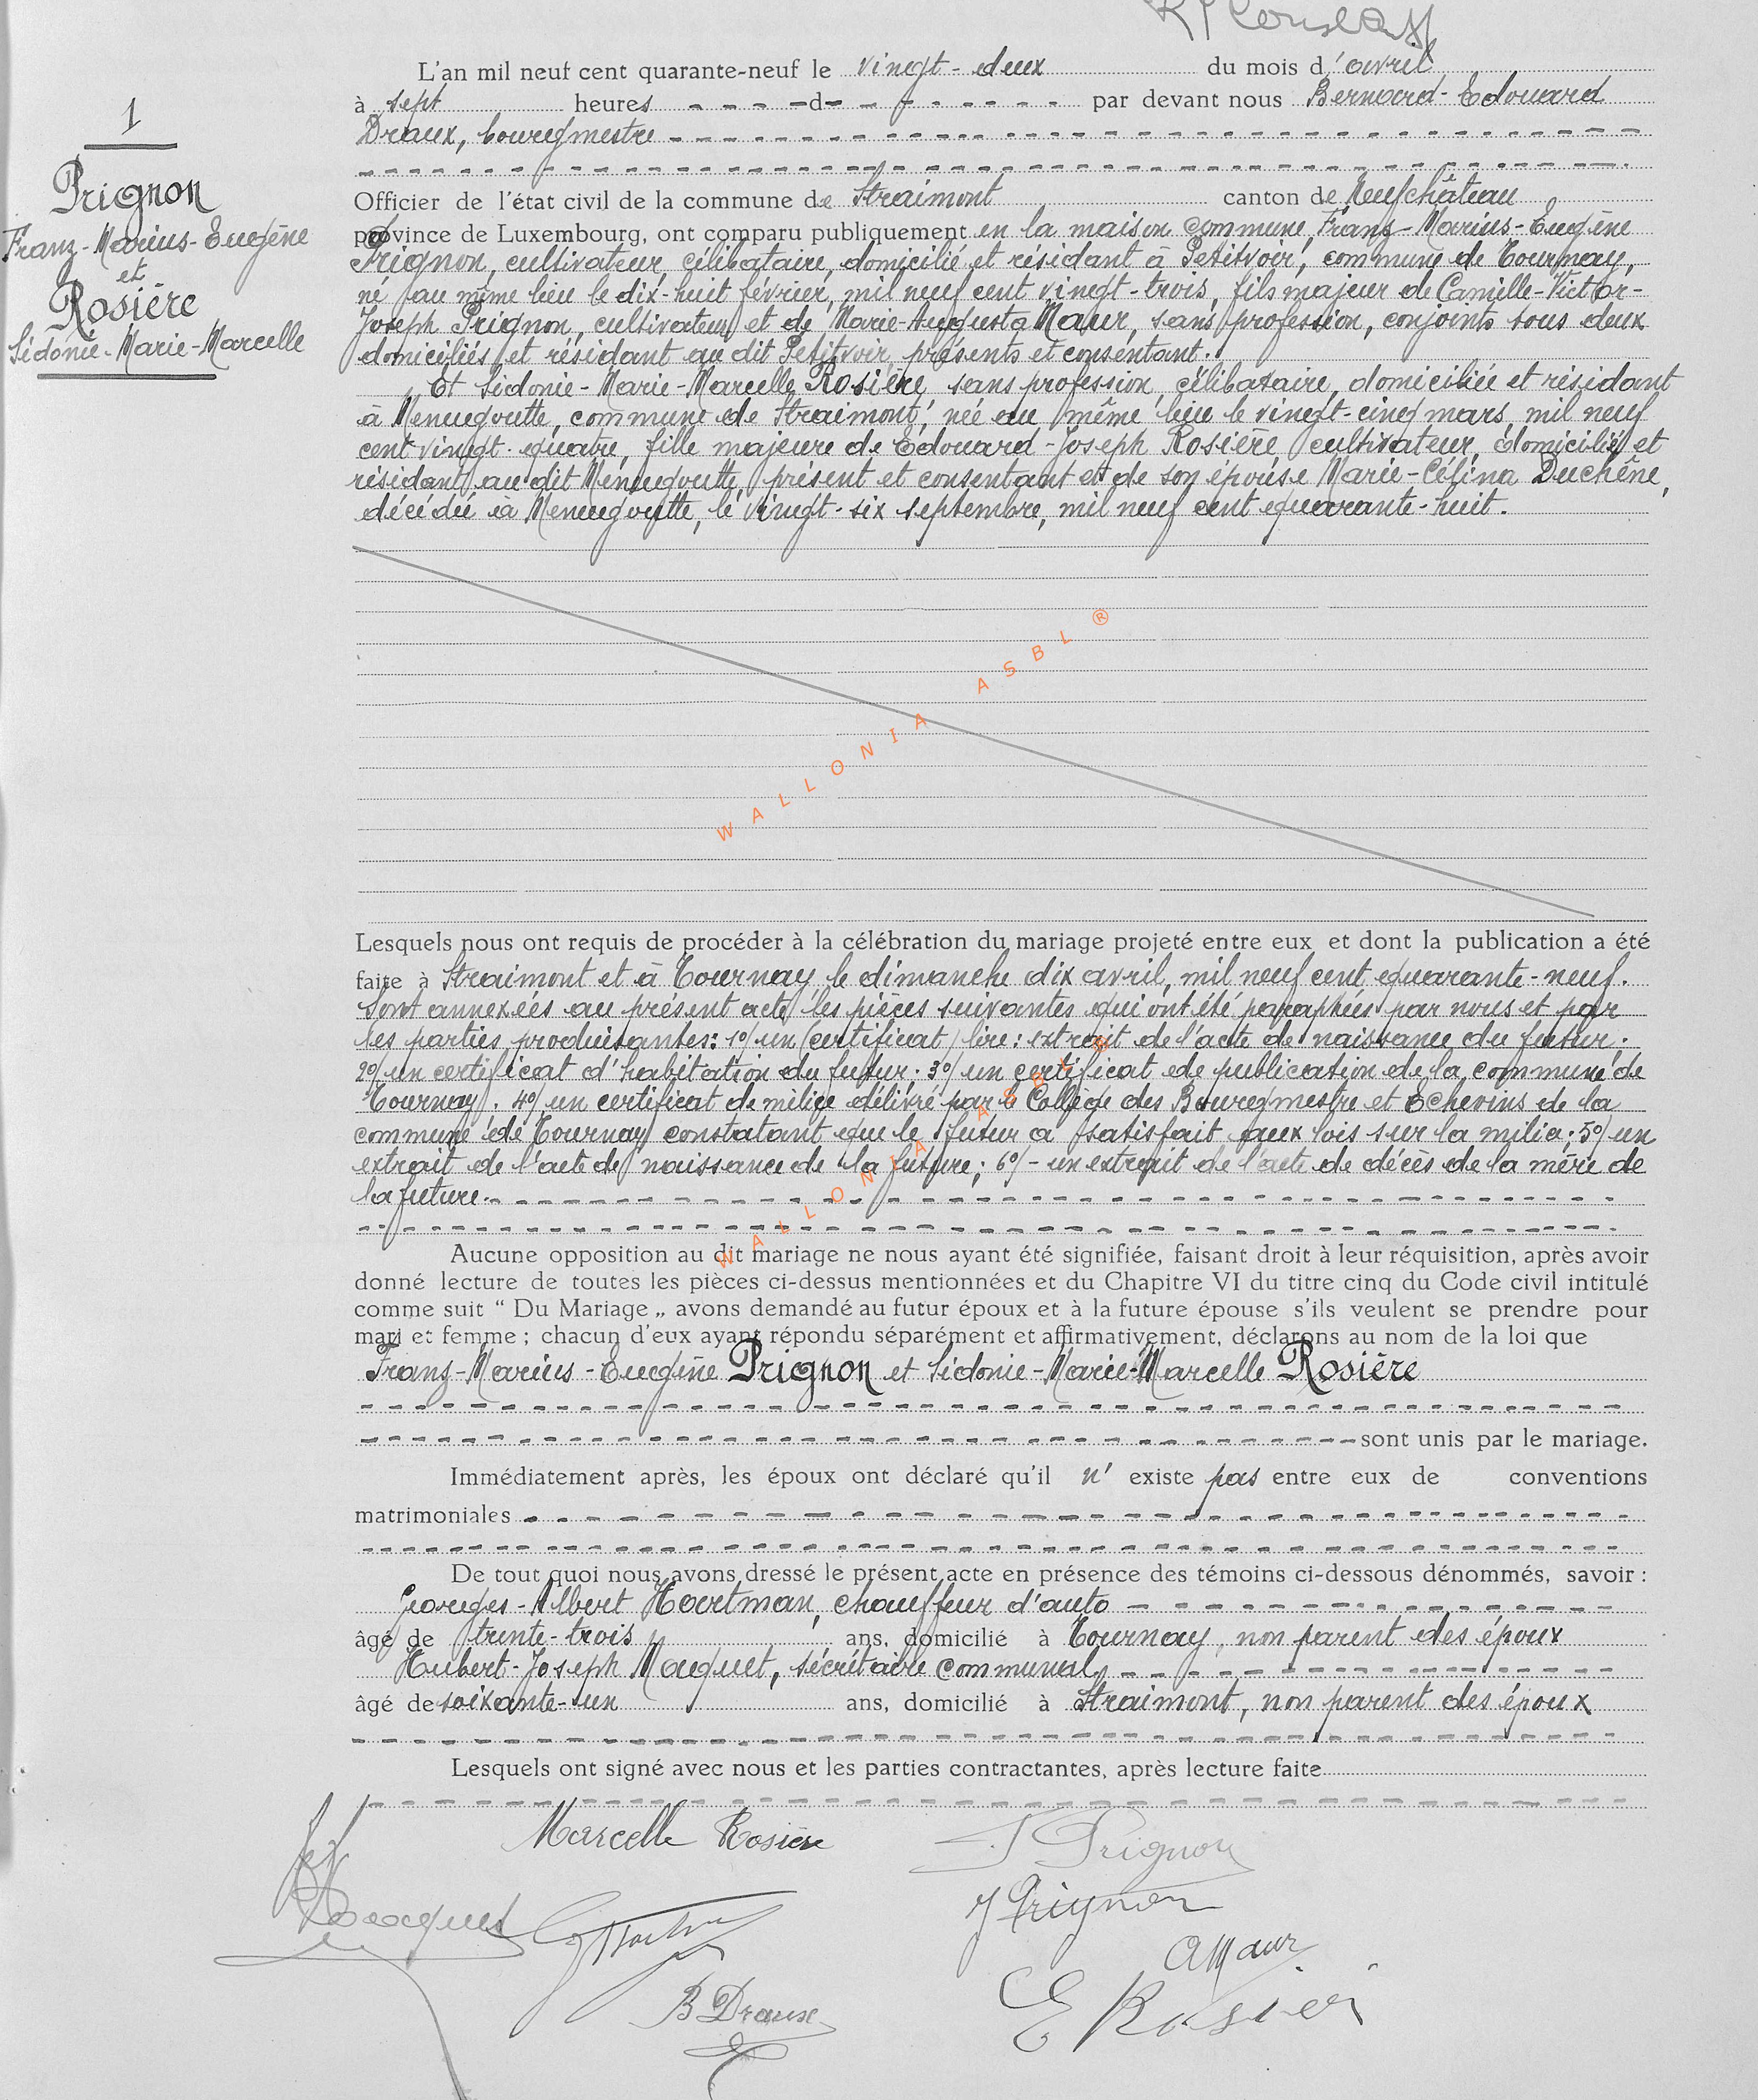 L'an mil neuf cent quarante-neuf le vingt-deux du mois d'avril
à sept heures - - - - d - - - - - - - - par devant nous Bernard-Edouard
Draux, bourgmestre
Officier de l'état civil de la commune de Straimont canton de Neufchâteau
1
Prignon
Franz-Marius-Eugène
et
Rosière
Sidonie-Marie-Marcelle
province de Luxembourg, ont comparu publiquement en la maison commune, Franz-Marius-Eugène
Prignon, cultivateur, célibataire, domicilié et résidant à Petitvoir, commune de Tournay,
né au même lieu le dix-huit février, mil neuf cent vingt-trois, fils majeur de Camille-Victor-
Joseph Prignon, cultivateur et de Marie-Augusta Maur, sans profession, conjoints tous deux
domiciliés et résidant au dit Petitvoir, présents et consentant.
Et Sidonie-Marie-Marcelle Rosière, sans profession, célibataire, domiciliée et résidant
à Menugoutte, commune de Straimont, née au même lieu le vingt-cinq mars, mil neuf
cent vingt-quatre, fille majeure de Edouard-Joseph Rosière cultivateur, domicilié et
résidant au dit Menugoutte, présent et consentant et de son épouse Marie-Célina Duchêne,
décédée à Menugoutte, le vingt-six septembre, mil neuf cent quarante-huit.
WALLONIA ASBL ®
Lesquels nous ont requis de procéder à la célébration du mariage projeté entre eux et dont la publication a été
faite à Straimont et à Tournay le dimanche dix avril, mil neuf cent quarante-neuf.
Sont annexées au présent acte les pièces suivantes qui ont été paraphées par nous et par
les parties produisantes: 1°/ un (certificat) lire: extrait de l'acte de naissance du futur.
2°/ un certificat d'habitation du futur. 3°/ un certificat de publication de la commune de
Tournay. 4°/ un certificat de milice délivré par le Collège des Bourgmestre et Echevins de la
commune de Tournay constatant que le futur a satisfait aux lois sur la milice; 5°/ un
extrait de l'acte de naissance de la future; 6°/ - un extrait de l'acte de décès de la mère de
la future.
WALLONIA ASBL ®
Aucune opposition au dit mariage ne nous ayant été signifiée, faisant droit à leur réquisition, après avoir
donné lecture de toutes les pièces ci-dessus mentionnées et du Chapitre VI du titre cinq du Code civil intitulé
comme suit “ Du Mariage „ avons demandé au futur époux et à la future épouse s'ils veulent se prendre pour
mari et femme ; chacun d'eux ayant répondu séparément et affirmativement, déclarons au nom de la loi que
Franz-Marius-Eugène Prignon et Sidonie-Marie-Marcelle Rosière
sont unis par le mariage.
Immédiatement après, les époux ont déclaré qu'il n' existe pas entre eux de conventions
matrimoniales
De tout quoi nous avons dressé le présent acte en présence des témoins ci-dessous dénommés, savoir :
Georges-Albert Hartman, chauffeur d'auto
âgé de trente-trois ans, domicilié à Tournay, non parent des époux
Hubert-Joseph Maquet, secrétaire communal,
âgé de soixante-un ans, domicilié à Straimont, non parent des époux
Lesquels ont signé avec nous et les parties contractantes, après lecture faite
Marcelle Rosière
Prignon
Prignon
A Maur
B Draux
E Rosière